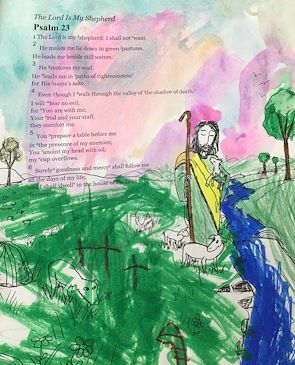 The Lord Is My Shepherd
Psalm 23
1 The Lord is my shepherd; I shall not want.
2 He makes me lie down in green pastures.
He leads me beside still waters.
3 He restores my soul.
He leads me in paths of righteousness
for His name's sake.
4 Even though I walk through the valley of the shadow of death,
I will fear no evil,
for You are with me;
Your rod and your staff,
they comfort me.
5 You prepare a table before me
in the presence of my enemies;
You anoint my head with oil;
my cup overflows.
Surely goodness and mercy shall follow me
all the days of my life,
shall dwell in the house